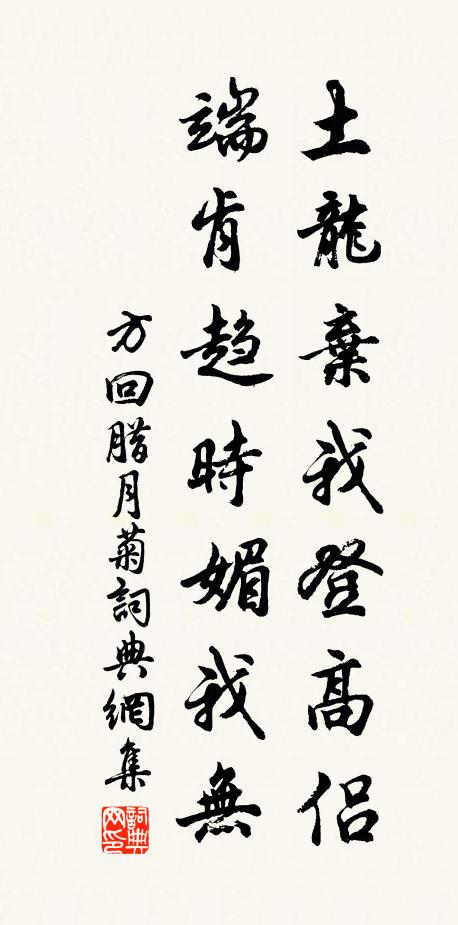 土龍棄我登高侶
端肯趨時媚我無
方回腊月菊詞典網集
詞典網印